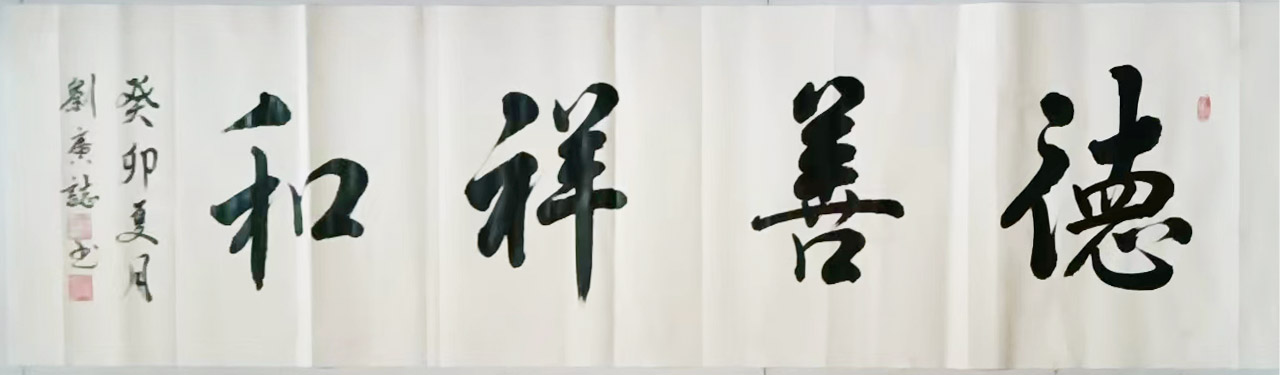 德善祥和
癸卯夏月
劉廣誌书